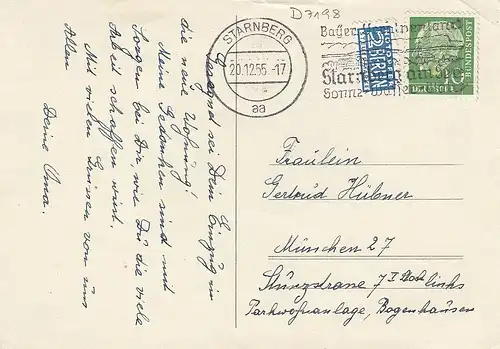 D7198
STARNBERG
20.12.56.-17
aa
Starnberg am See
NOTOPFER
2 BERLIN
DEUTSCHE BUNDESPOST
10
Gesegnet sei Dein Einzug in
die neue Wohnung!
Meine Gedanken sind mit
Sorgen bei Dir wie Du die viele
Arbeit schaffen wirst.
Mit vielen Grüssen von uns
Allen
Deine Oma.
Fräulein
Gertrud Hübner
München 27
links
Parkwohnanlage, Bogenhausen